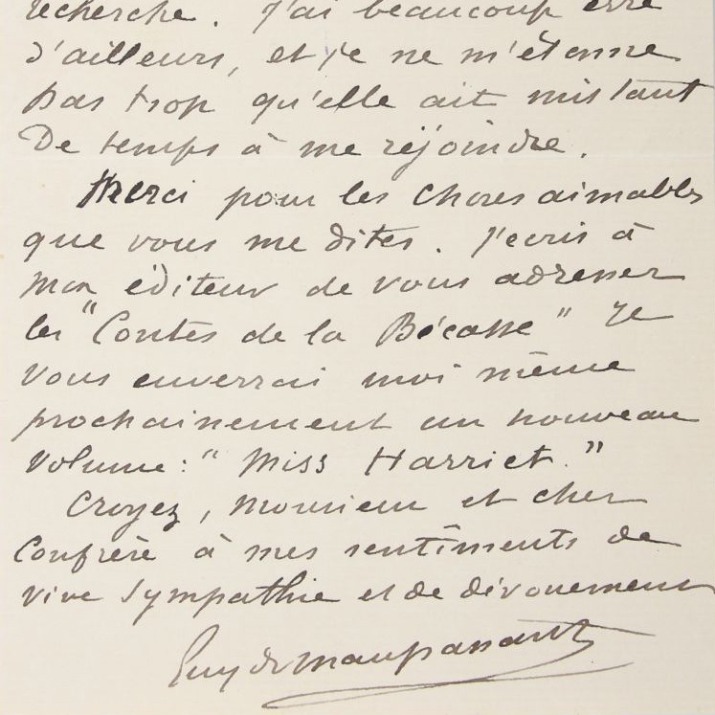 recherche. J'ai beaucoup erré
d'ailleurs, et je ne m'étonne
pas trop qu'elle ait mis tant
De temps à me rejoindre.
Merci pour les choses aimables
que vous me dites. J'ecris à
mon éditeur de vous adresser
les "Contes de la Bécasse" Je
vous enverrai moi même
prochainement un nouveau
volume: "Miss Harriet."
Croyez, Monsieur et cher
Confrère à mes sentiments de
vive sympathie et de dévouement
Guy de Maupassant